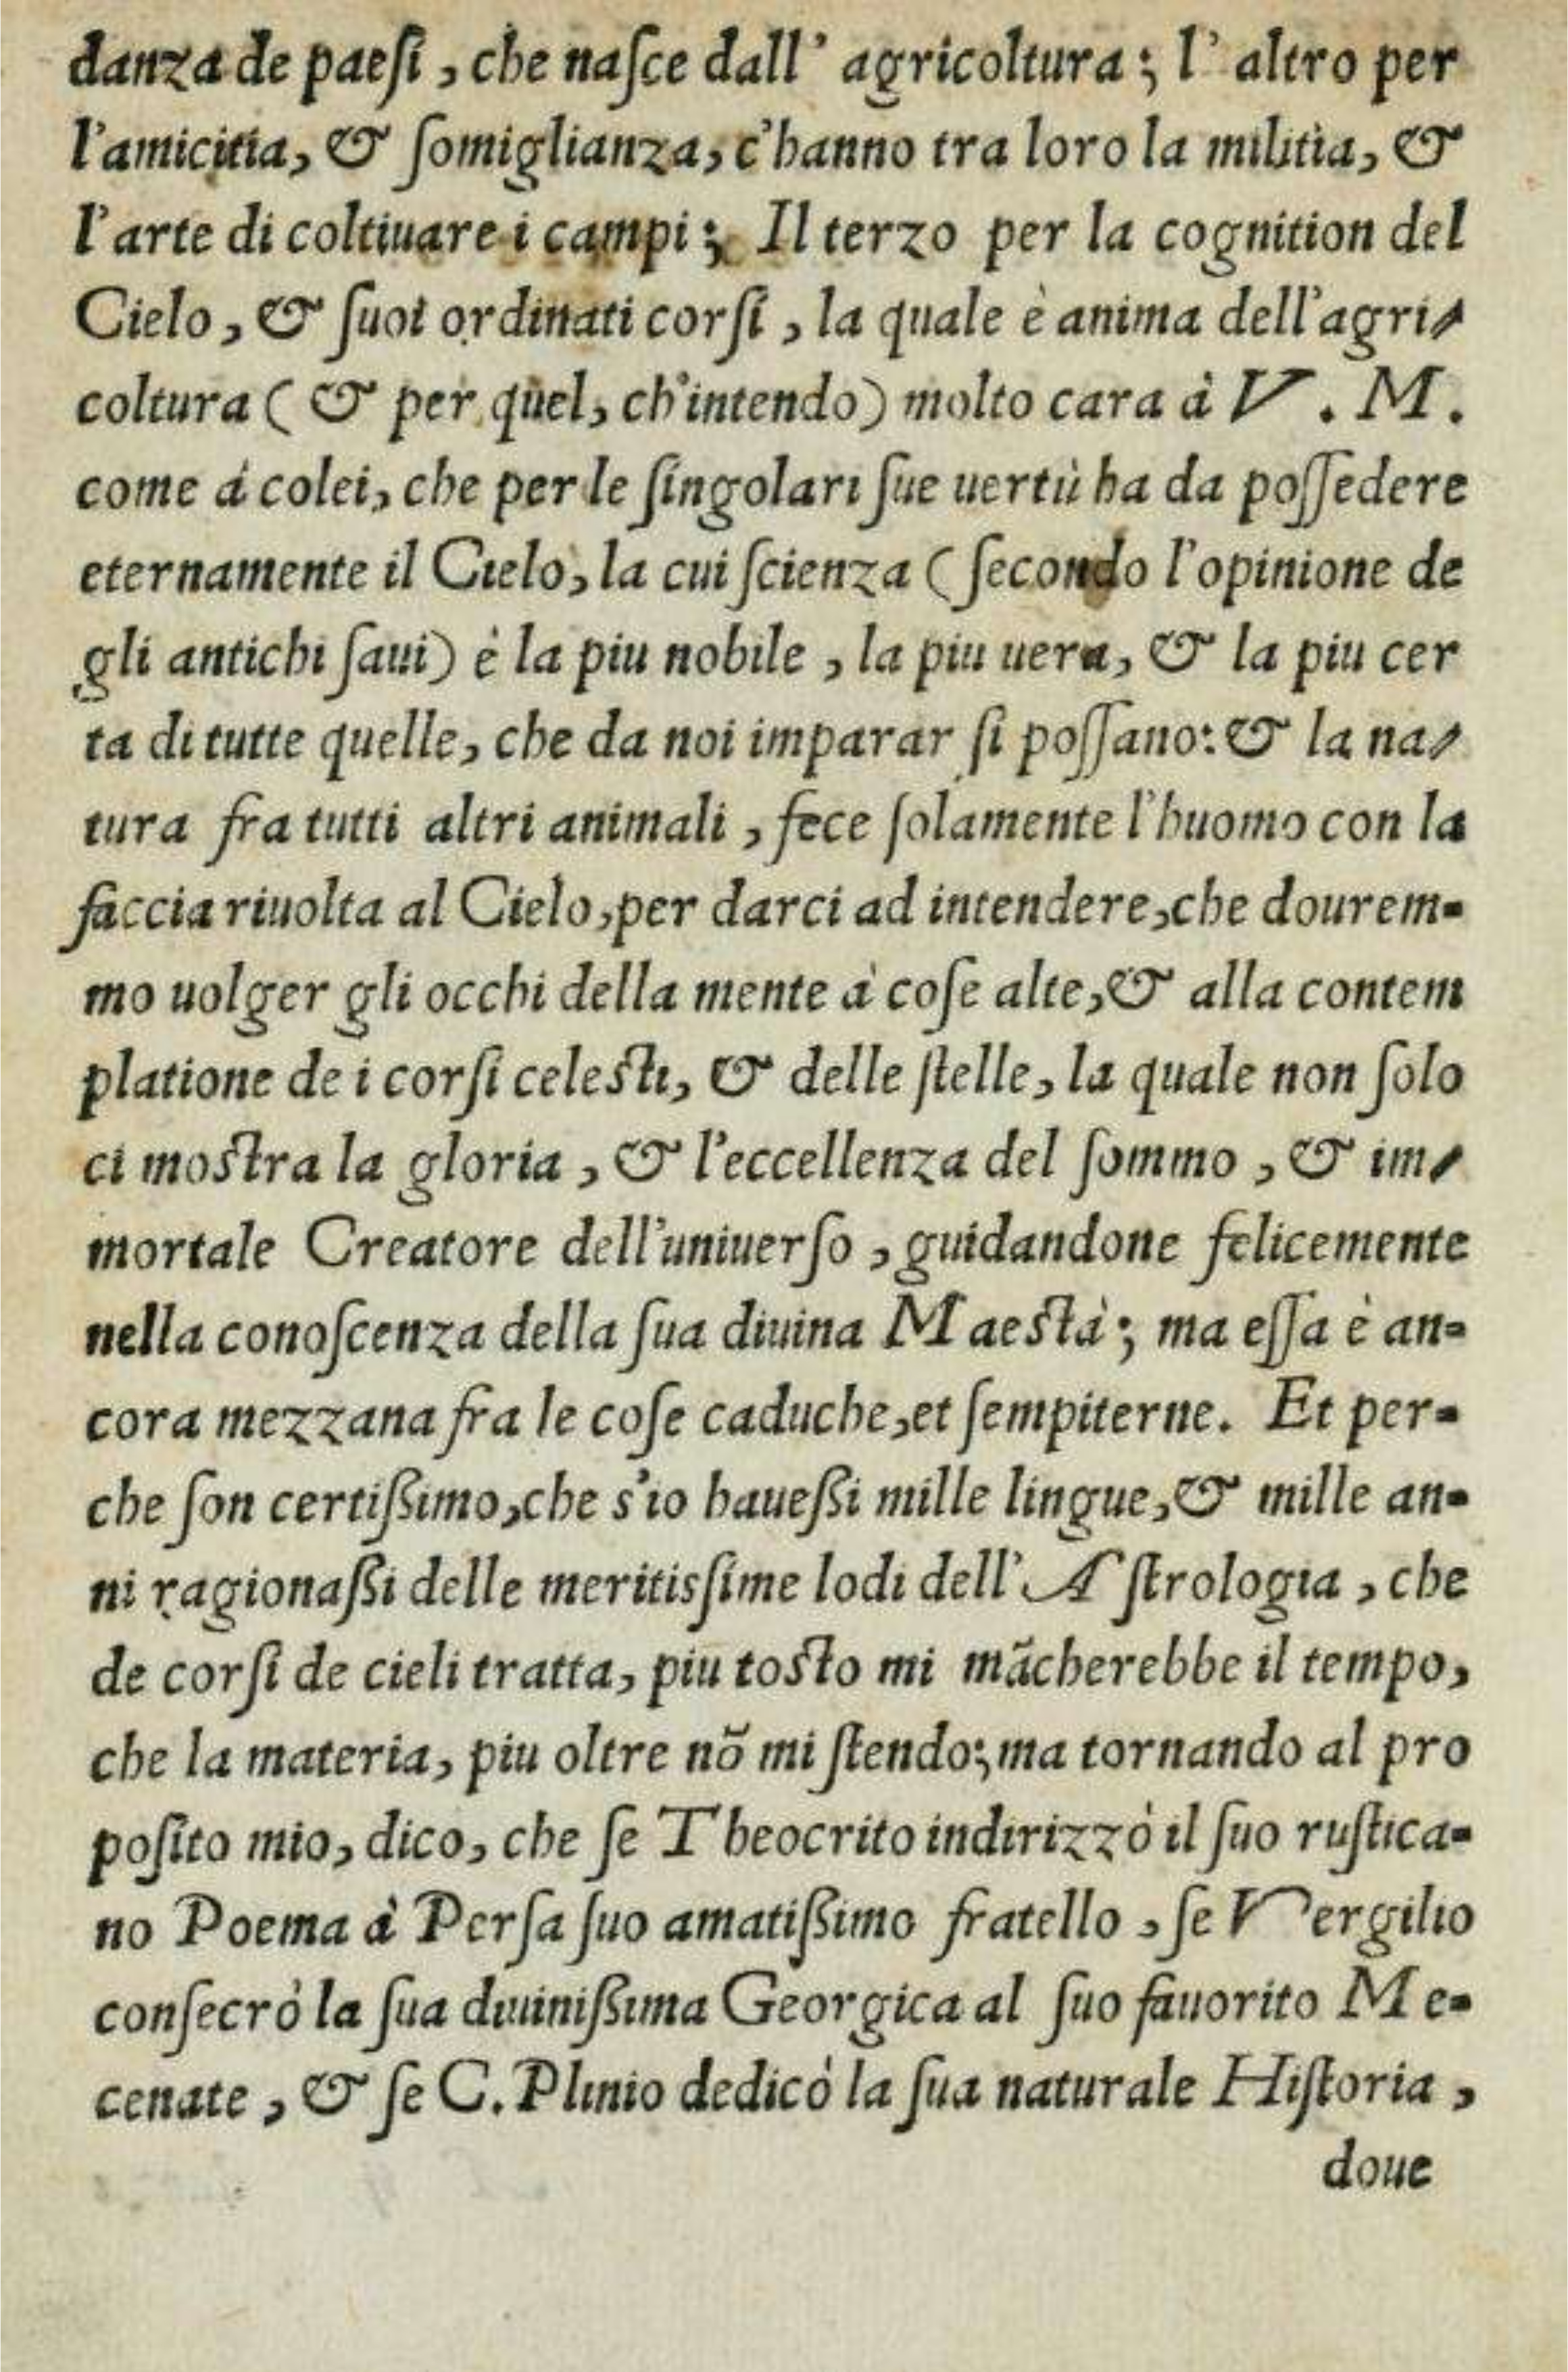 danza de paeſi, che naſce dall' agricoltura; l' altro per
l'amicitia, & ſomiglianza, c'hanno tra loro la militia, &
l'arte di coltiuare i campi; Il terzo per la cognition del
Cielo, & ſuoi ordinati corſi, la quale è anima dell'agri-
coltura (& per quel, ch'intendo) molto cara à V. M.
come á colei, che per le ſingolari ſue uertù ha da poſſedere
eternamente il Cielo, la cui ſcienza (ſecondo l'opinione de
gli antichi ſaui) è la piu nobile, la piu uera, & la piu cer
ta di tutte quelle, che da noi imparar ſi poſſano: & la na-
tura fra tutti altri animali, fece ſolamente l'huomo con la
faccia riuolta al Cielo, per darci ad intendere, che dourem-
mo uolger gli occhi della mente à coſe alte, & alla contem
platione de i corſi celeſti, & delle ſtelle, la quale non ſolo
ci moſtra la gloria, & l'eccellenza del ſommo, & im-
mortale Creatore dell'uniuerſo, guidandone felicemente
nella conoſcenza della ſua diuina Maeſtà; ma eſſa è an-
cora mezzana fra le coſe caduche, et ſempiterne. Et per-
che ſon certiſſimo, che s'io haueſſi mille lingue, & mille an-
ni ragionaſſi delle meritisſime lodi dell'Aſtrologia, che
de corſi de cieli tratta, piu toſto mi mãcherebbe il tempo,
che la materia, piu oltre nõ mi ſtendo; ma tornando al pro
poſito mio, dico, che ſe Theocrito indirizzò il ſuo ruſtica-
no Poema à Perſa ſuo amatiſſimo fratello, ſe Vergilio
conſecrò la ſua diuiniſſima Georgica al ſuo fauorito Me-
cenate, & ſe C. Plinio dedicò la ſua naturale Hiſtoria,
doue